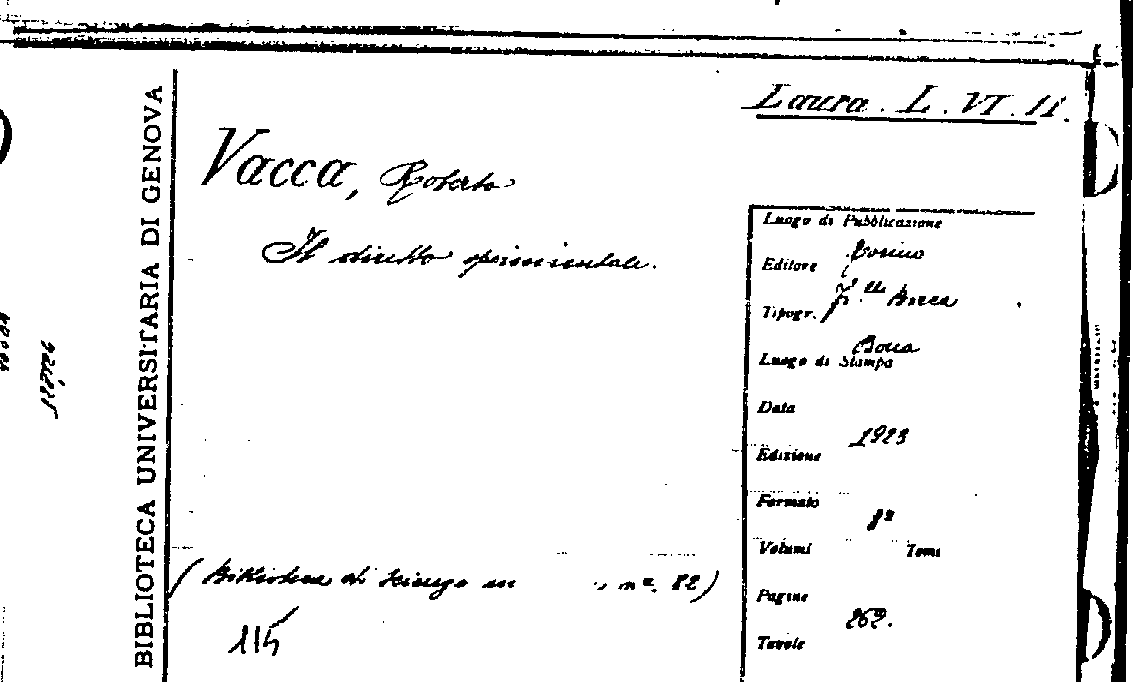 BIBLIOTECA UNIVERSITARIA DI GENOVA
Laura. L. VI. 11.
Vacca, Roberto
Il diritto sperimentale.
Luogo di Pubblicazione
Torino
Editore
F.lli Bocca
Tipogr.
Bocca
Luogo di Stampa
Data
1923
Edizione
Formato
8º
Volumi Tomi
Pagine
262.
Tavole
(Biblioteca di nº. 82)
115